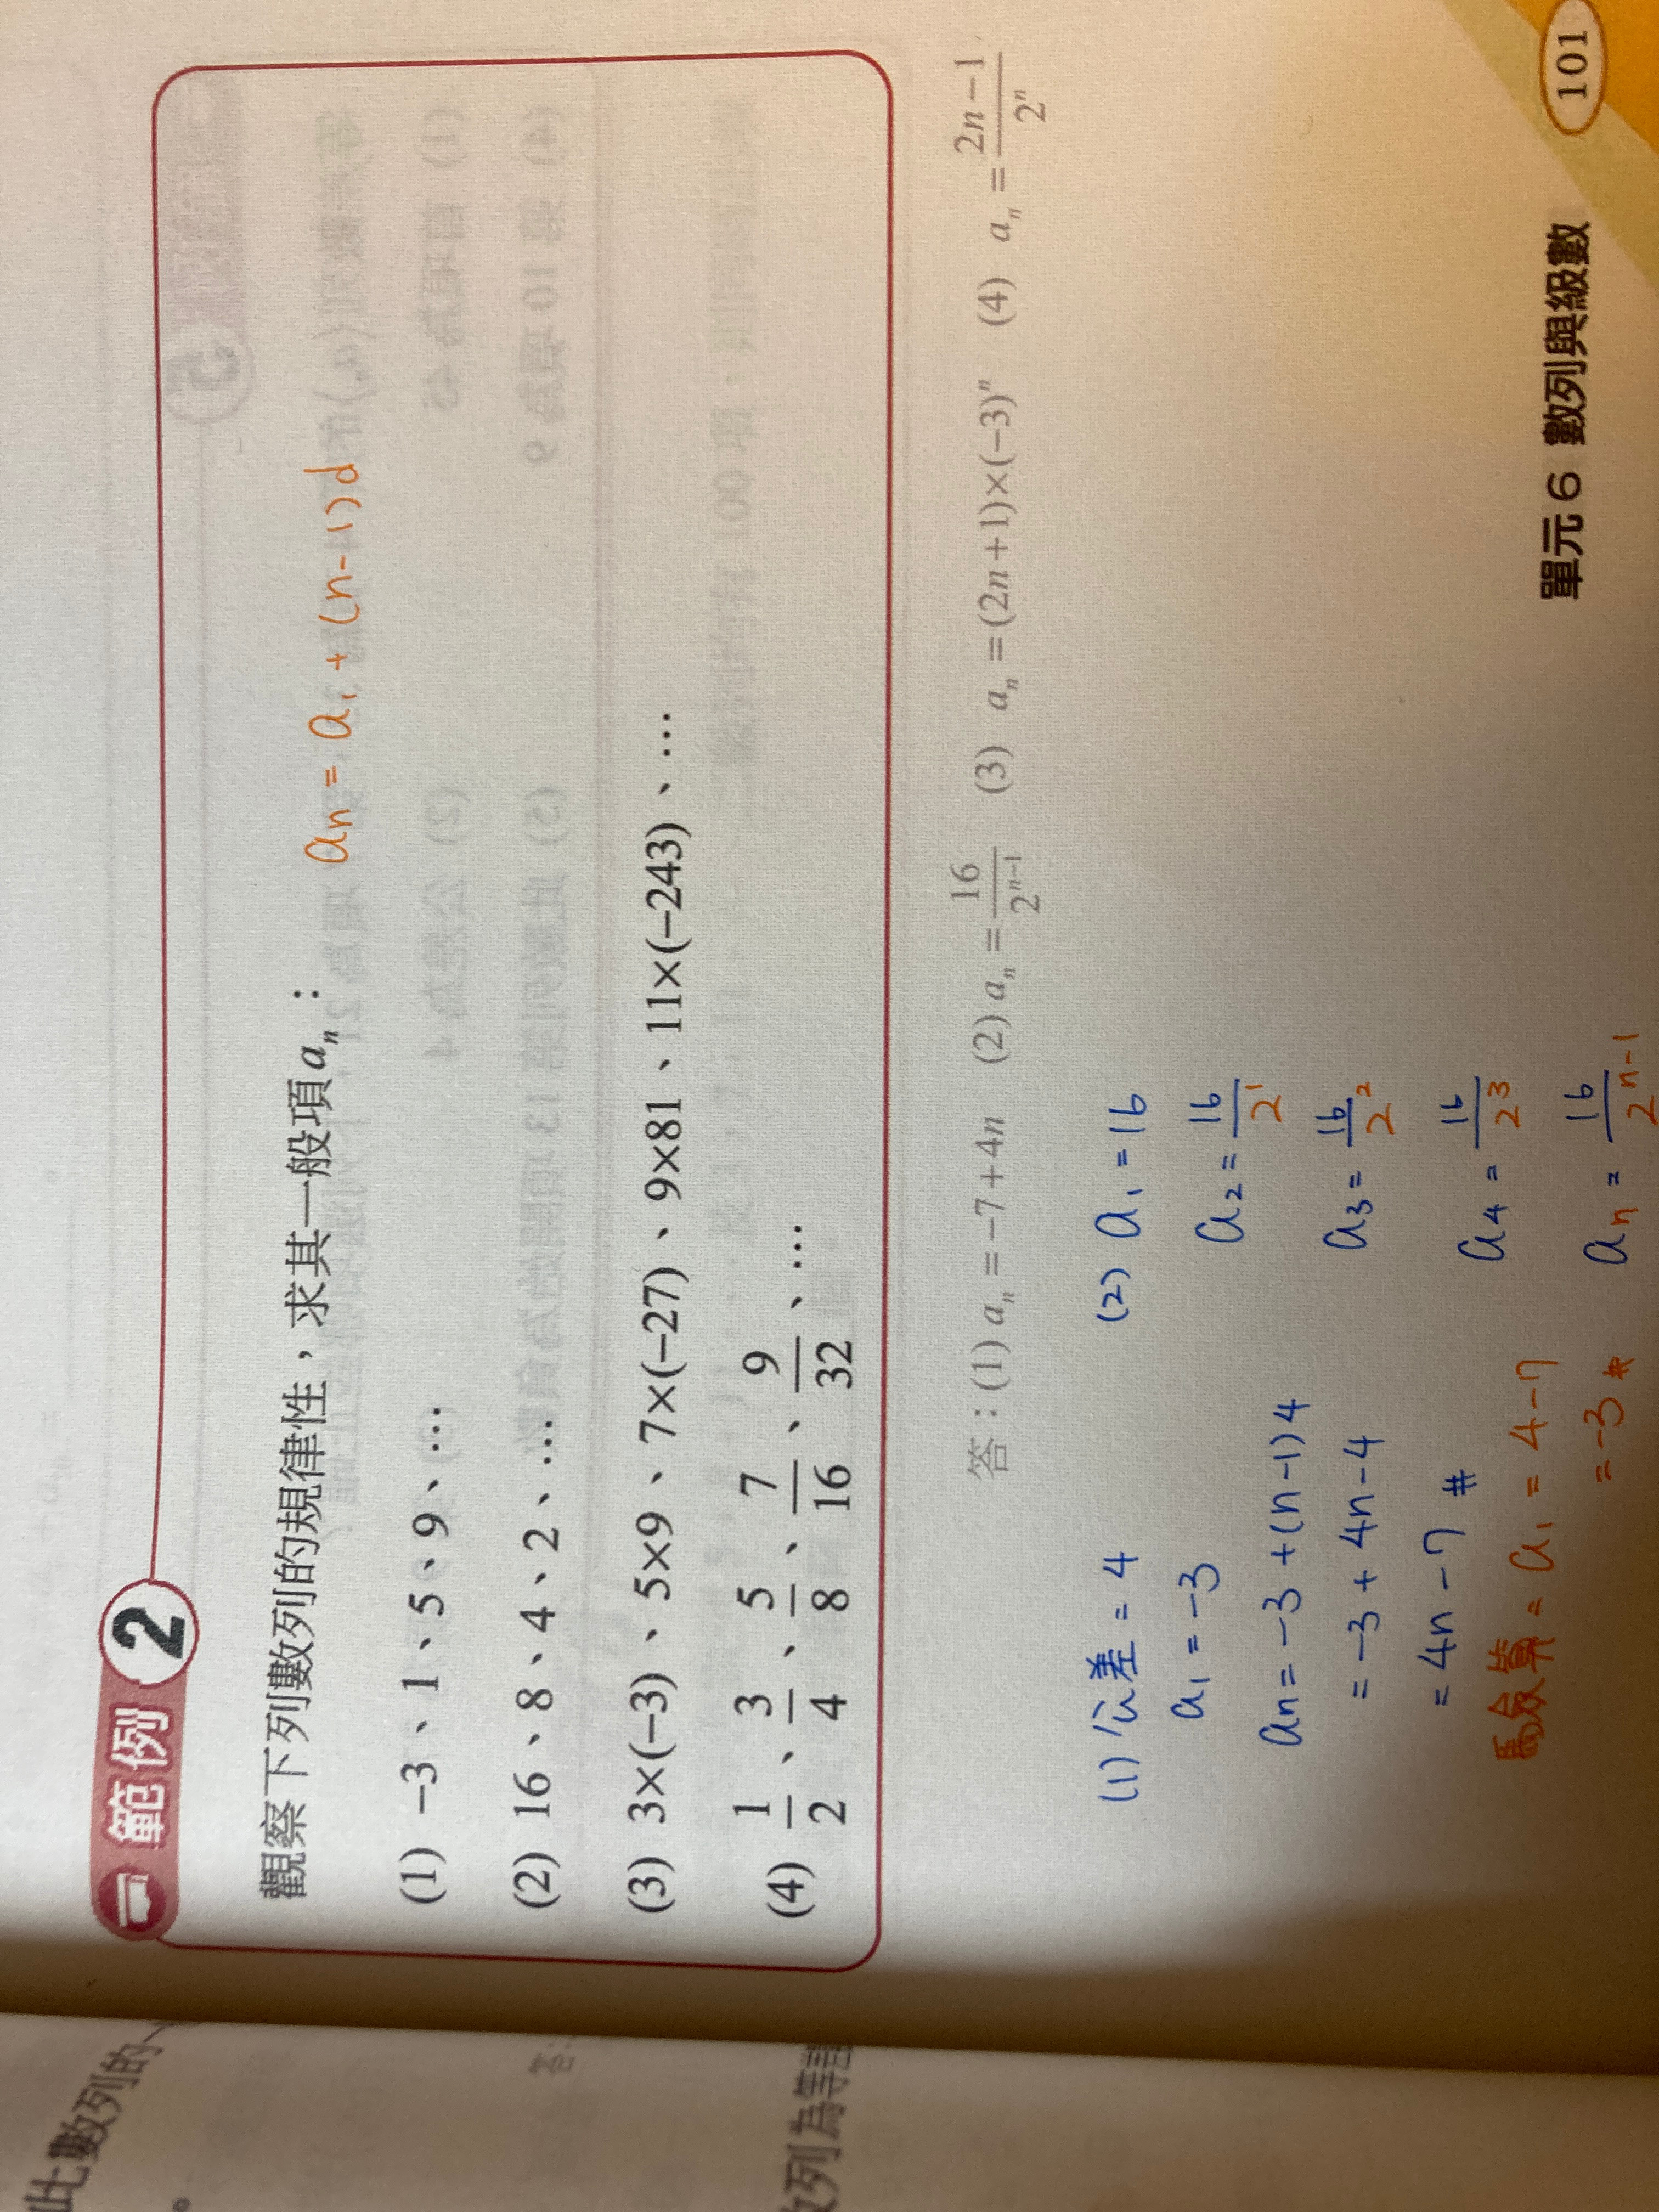 範例 2
觀察下列數列的規律性，求其一般項aₙ：
an = a₁ + (n-1)d
(1) −3、1、5、9、…
(2) 16、8、4、2、…
(3) 3×(−3)、5×9、7×(−27)、9×81、11×(−243)、…
(4) 1/2、3/4、5/8、7/16、9/32、…
答：(1) aₙ = −7+4n (2) aₙ = 16/2ⁿ⁻¹ (3) aₙ = (2n+1)×(−3)ⁿ (4) aₙ = (2n−1)/2ⁿ
(1) 公差 = 4
a₁ = −3
an = −3 + (n−1)4
= −3 + 4n − 4
= 4n − 7 #
驗算 = a₁ = 4−7
= −3 #
(2) a₁ = 16
a₂ = 16/2¹
a₃ = 16/2²
a₄ = 16/2³
an = 16/2ⁿ⁻¹
單元 6 數列與級數 101
此數列的一
數列為等